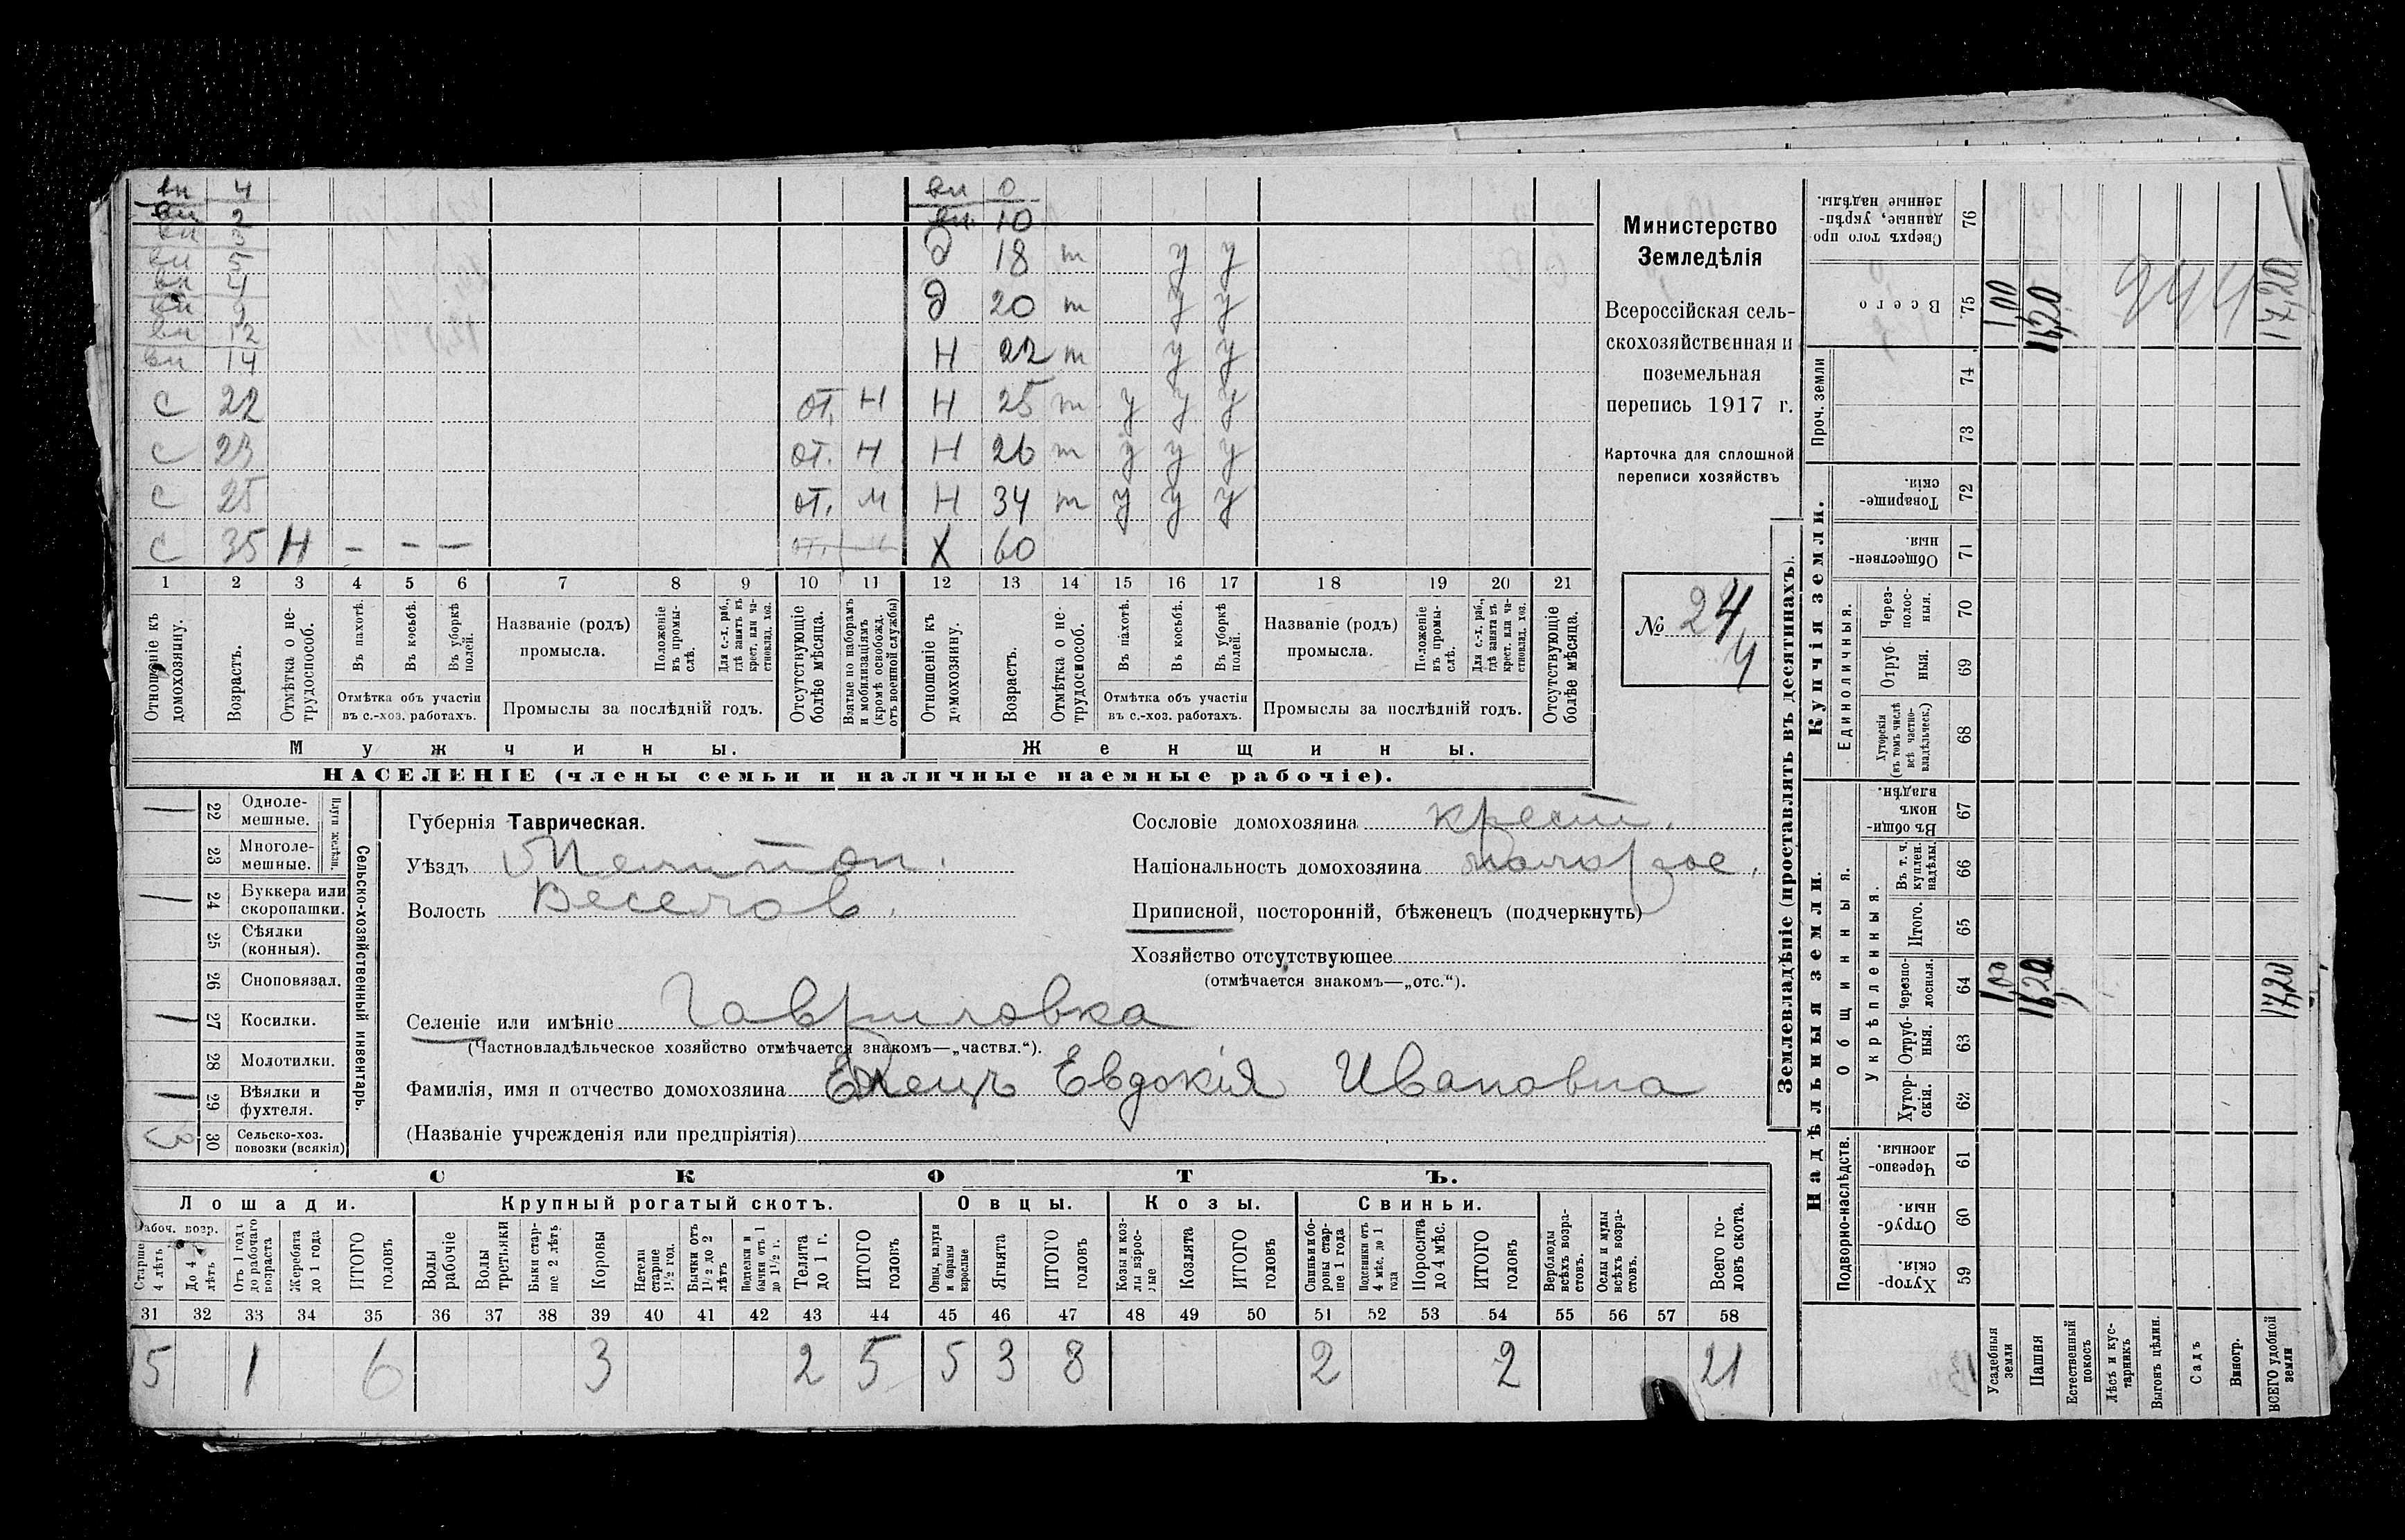 вн 4
вн 2
вн 3
вн 5
вн 4
вн 9
вн 12
вн 14
С 22 от. Н
С 23 от. Н
С 25 от. М
С 35 Н - - -
вн 0
вн. 10
д 18 т у у
д 20 т у у
Н 22 т у у
Н 25 т у у у
Н 26 т у у у
Н 34 т у у у
Х 60
1 2 3 4 5 6 7 8 9 10 11 12 13 14 15 16 17 18 19 20 21
Отношеніе къ домохозяину.
Возрастъ.
Отмѣтка о не-
трудоспособ.
Въ пахотѣ.
Въ косьбѣ.
Въ уборкѣ полей.
Отмѣтка объ участіи
въ с.-хоз. работахъ.
Названіе (родъ)
промысла.
Положеніе въ промы-
слѣ.
Для с.-х. раб., гдѣ занятъ въ крест. или ча-
стновлад. хоз.
Промыслы за послѣдній годъ.
Отсутствующіе болѣе мѣсяца.
Взятые по наборамъ и мобилизаціямъ (кромѣ освобожд. отъ военной службы)
Отношеніе къ домохозяину.
Возрастъ.
Отмѣтка о не-
трудоспособ.
Въ пахотѣ.
Въ косьбѣ.
Въ уборкѣ полей.
Отмѣтка объ участіи
въ с.-хоз. работахъ.
Названіе (родъ)
промысла.
Положеніе въ промы-
слѣ.
Для с.-х. раб., гдѣ занята въ крест. или ча-
стновлад. хоз.
Промыслы за послѣдній годъ.
Отсутствующіе болѣе мѣсяца.
Мужчины.
Женщины.
НАСЕЛЕНІЕ (члены семьи и наличные наемные рабочіе).
Министерство
Земледѣлія
Всероссійская сель-
скохозяйственная и
поземельная
перепись 1917 г.
Карточка для сплошной
переписи хозяйствъ
№ 24
4
Сельско-хозяйственный инвентарь.
Плуги желѣзн.
1 22 Одноле-
мешные.
23 Многоле-
мешные.
1 24 Буккера или
скоропашки.
25 Сѣялки
(конныя).
26 Сноповязал.
1 27 Косилки.
28 Молотилки.
1 29 Вѣялки и
фухтеля.
3 30 Сельско-хоз.
повозки (всякія)
Губернія Таврическая.
Уѣздъ Мелитоп.
Волость Веселов.
Сословіе домохозяина крест.
Національность домохозяина малорос.
Приписной, посторонній, бѣженецъ (подчеркнуть)
Хозяйство отсутствующее
(отмѣчается знакомъ—„отс.“).
Селеніе или имѣніе Гавриловка
(Частновладѣльческое хозяйство отмѣчается знакомъ—„частвл.“).
Фамилія, имя и отчество домохозяина Евдокія Ивановна
(Названіе учрежденія или предпріятія)
СКОТЪ.
Лошади.
Крупный рогатый скотъ.
Овцы.
Козы.
Свиньи.
Рабоч. возр.
Старше 4 лѣтъ
До 4 лѣтъ
Отъ 1 года до рабочаго возраста
Жеребята до 1 года
ИТОГО головъ
Волы рабочіе
Волы третьяки
Быки стар-
ше 2 лѣтъ
Коровы
Нетели старше 1½ год.
Бычки отъ 1½ до 2 лѣтъ
Подтелки и бычки отъ 1 до 1½ г.
Телята до 1 г.
ИТОГО головъ
Овцы, валухи и бараны взрослые
Ягнята
ИТОГО головъ
Козы и коз-
лы взрос-
лые
Козлята
ИТОГО головъ
Свиньи и бо-
ровы стар-
ше 1 года
Подсвинки отъ 4 мѣс. до 1 года
Поросята до 4 мѣс.
ИТОГО головъ
Верблюды всѣхъ возра-
стовъ.
Ослы и мулы всѣхъ возра-
стовъ.
Всего го-
ловъ скота.
31 32 33 34 35 36 37 38 39 40 41 42 43 44 45 46 47 48 49 50 51 52 53 54 55 56 57 58
5 1 6 3 2 5 5 3 8 2 2 21
Землевладѣніе (проставлять въ десятинахъ).
Купчія земли.
Надѣльныя земли.
Сверхъ того про
данные, укрѣп-
ленные надѣлы. 76
Всего 75 1,00 16,20 244 17,20
Проч. земли
74
73
Товарище-
скія. 72
Обществен-
ныя. 71
Единоличныя.
Через-
полос-
ныя. 70
Отруб-
ныя. 69
Хуторскія
(въ томъ числѣ
всѣ частно-
владѣльческ.) 68
Общинныя.
Въ общи-
номъ
владѣн. 67
Укрѣпленныя.
Въ т. ч.
куплен.
надѣлы. 66
Итого. 65
Черезпо-
лосныя. 64 1,00 16,20 17,20
Отруб-
ныя. 63
Хутор-
скія. 62
Подворно-наслѣдств.
Черезпо-
лосныя. 61
Отруб-
ныя. 60
Хутор-
скія. 59
Усадебныя земли
Пашня
Естественный покосъ
Лѣсъ и кус-
тарникъ
Выгонъ цѣлин.
Садъ
Виногр.
ВСЕГО удобной земли